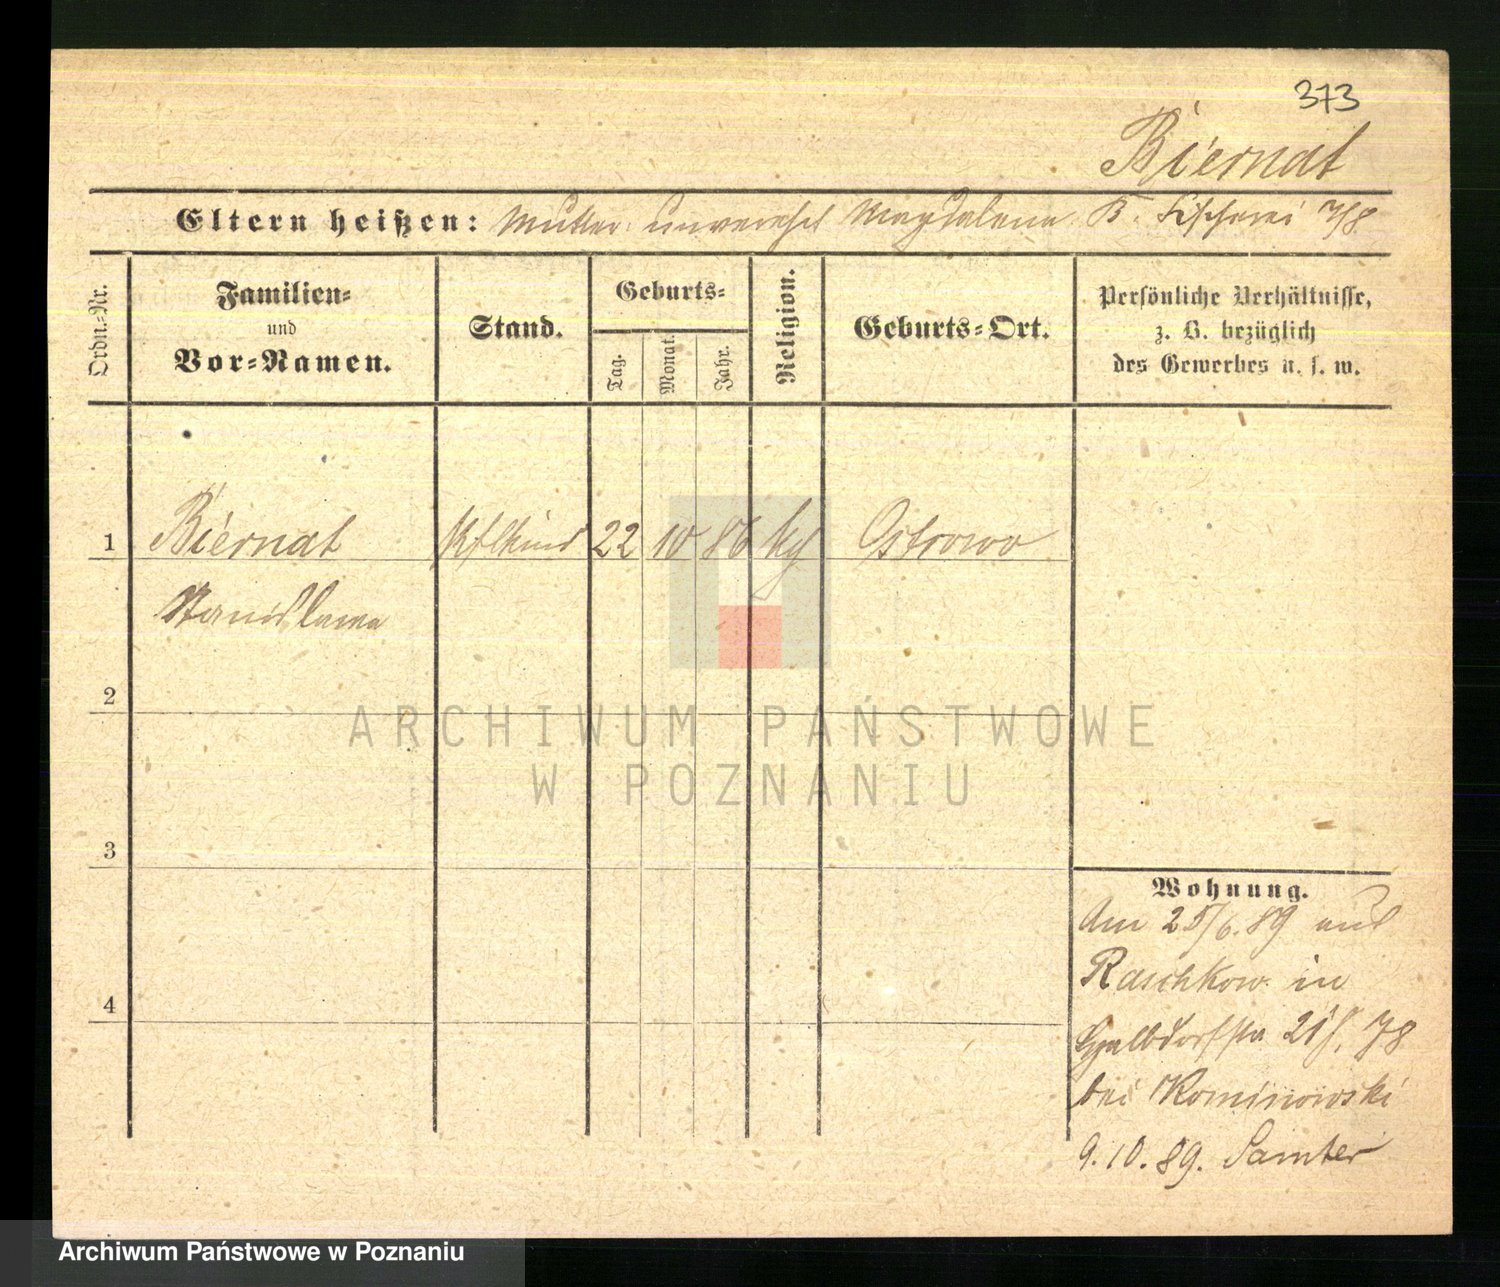 373
Biernat
Eltern heißen: Mutter unverehel Magdalena B. Fischerei 7/8
Ordn.-Nr.
Familien-
und
Vor-Namen.
Stand.
Geburts-
Tag.
Monat.
Jahr.
Religion.
Geburts-Ort.
Persönliche Verhältnisse,
z. B. bezüglich
des Gewerbes u. s. w.
1 Biernat 22 10 86 Ostrowo
Stanislawa
2
3
4
Wohnung.
Am 25/6.89 aus
Raschkow in
78
bei Kominowski
9.10.89. Samter
ARCHIWUM PAŃSTWOWE
W POZNANIU
Archiwum Państwowe w Poznaniu